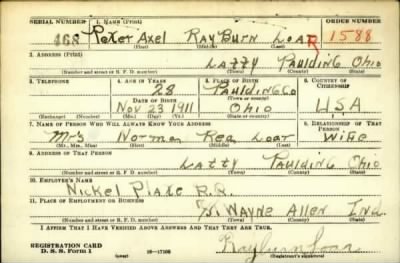 SERIAL NUMBER 1. NAME (Print) ORDER NUMBER
468 Peter Axel RayBurn Loar 1588
(First) (Middle) (Last)
2. ADDRESS (Print)
Latty Paulding Ohio
(Number and street or R. F. D. number) (Town) (County) (State)
3. TELEPHONE 4. AGE IN YEARS 5. PLACE OF BIRTH 6. COUNTRY OF CITIZENSHIP
28 Paulding Co
DATE OF BIRTH (Town or county)
Nov 23 1911 Ohio USA
(Exchange) (Number) (Mo.) (Day) (Yr.) (State or country)
7. NAME OF PERSON WHO WILL ALWAYS KNOW YOUR ADDRESS 8. RELATIONSHIP OF THAT PERSON
Mrs Norma Rea Loar Wife
(Mr., Mrs., Miss) (First) (Middle) (Last)
9. ADDRESS OF THAT PERSON
Latty Paulding Ohio
(Number and street or R. F. D. number) (Town) (County) (State)
10. EMPLOYER'S NAME
Nickel Plate R.R.
11. PLACE OF EMPLOYMENT OR BUSINESS
Ft. Wayne Allen Ind.
(Number and street or R. F. D. number) (Town) (County) (State)
I AFFIRM THAT I HAVE VERIFIED ABOVE ANSWERS AND THAT THEY ARE TRUE.
REGISTRATION CARD
D. S. S. Form 1 (over) 16—17105 Rayburn Loar
(Registrant's signature)